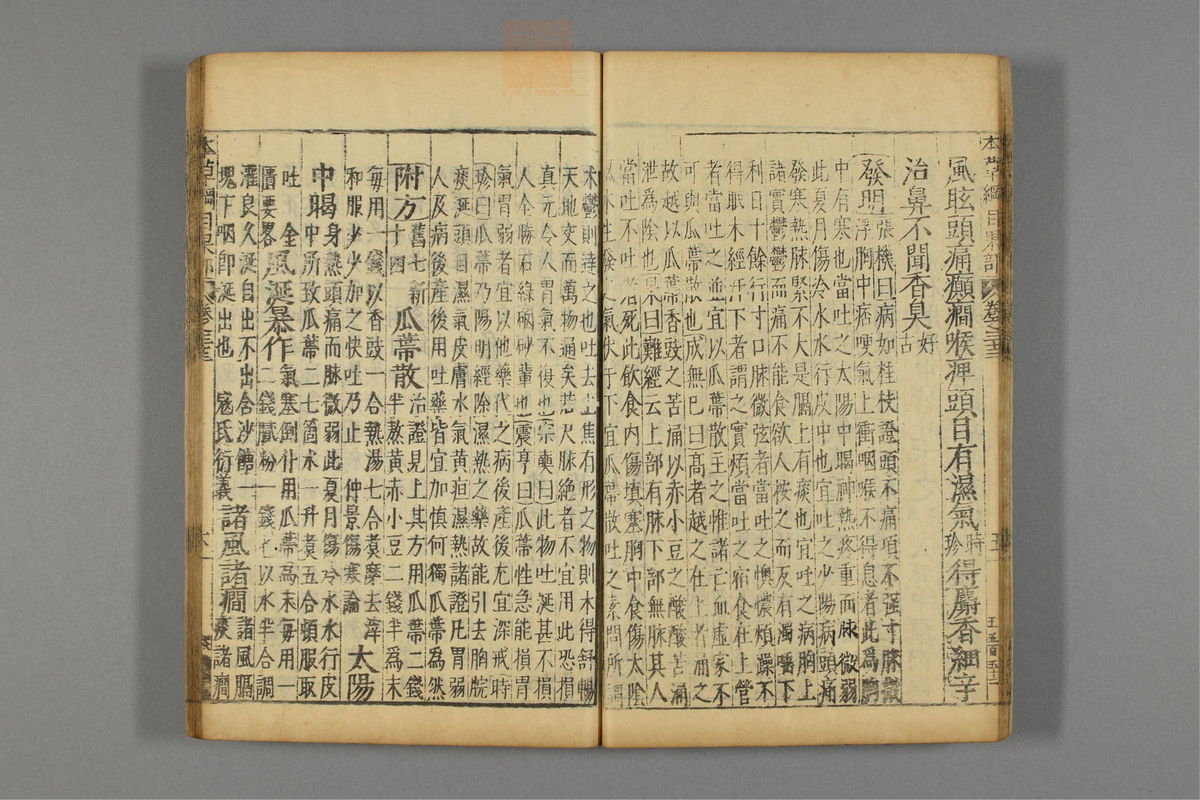 本草綱目果部 卷之三十三
風眩頭痛癲癇喉痺頭目有濕氣時珍得麝香細辛
治鼻不聞香臭好古
發明張機曰病如桂枝證頭不痛項不强寸脉微
浮胸中痞哽氣上衝咽喉不得息者此爲胸
中有寒也當吐之太陽中暍神熱疼重而脉微弱
此夏月傷冷水水行皮中也宜吐之少陽病頭痛
發寒熱脉緊不大是膈上有痰也宜吐之病胸上
諸實鬱鬱而痛不能食欲人按之而反有濁唾下
利日十餘行寸口脉微弦者當吐之懊憹煩躁不
得眠未經汗下者謂之實煩當吐之宿食在上管
者當吐之並宜以瓜蒂散主之惟諸亡血虛家不
可與瓜蒂散也成無已曰高者越之在上者涌之
故越以瓜蒂香豉之苦涌以赤小豆之酸酸苦涌
泄爲陰也杲曰難經云上部有脉下部無脉其人
當吐不吐者死此飲食內傷填塞胸中食傷太陰
生發之氣伏于下宜瓜蒂散吐之素問所謂
木鬱則達之也吐去上焦有形之物則木得舒暢
天地交而萬物通矣若尺脉絶者不宜用此恐損
真元令人胃氣不復也宗奭曰此物吐涎甚不損
人全勝石綠硇砂輩也震亨曰瓜蒂性急能損胃
氣胃弱者宜以他藥代之病後產後尤宜深戒時
珍曰瓜蒂乃陽明經除濕熱之藥故能引去胸脘
痰涎頭目濕氣皮膚水氣黄疸濕熱諸證凡胃弱
人及病後產後用吐藥皆宜加慎何獨瓜蒂爲然
附方舊七新十四瓜蒂散治證見上其方用瓜蒂二錢半熬黄赤小豆二錢半爲末
每用一錢以香豉一合熱湯七合煑糜去滓
和服少少加之快吐乃止 仲景傷寒論 太陽
中暍身熱頭痛而脉微弱此夏月傷冷水水行皮中所致瓜蒂二七箇水一升煑五合頓服取
吐 金匱要畧風涎暴作氣塞倒仆用瓜蒂爲末毎用一二錢膩粉一錢匕以水半合調
灌良久涎自出不出含沙餹一
塊下咽即涎出也 寇氏衍義諸風諸癇諸風膈痰諸癇
本草綱目果部 卷之三十三